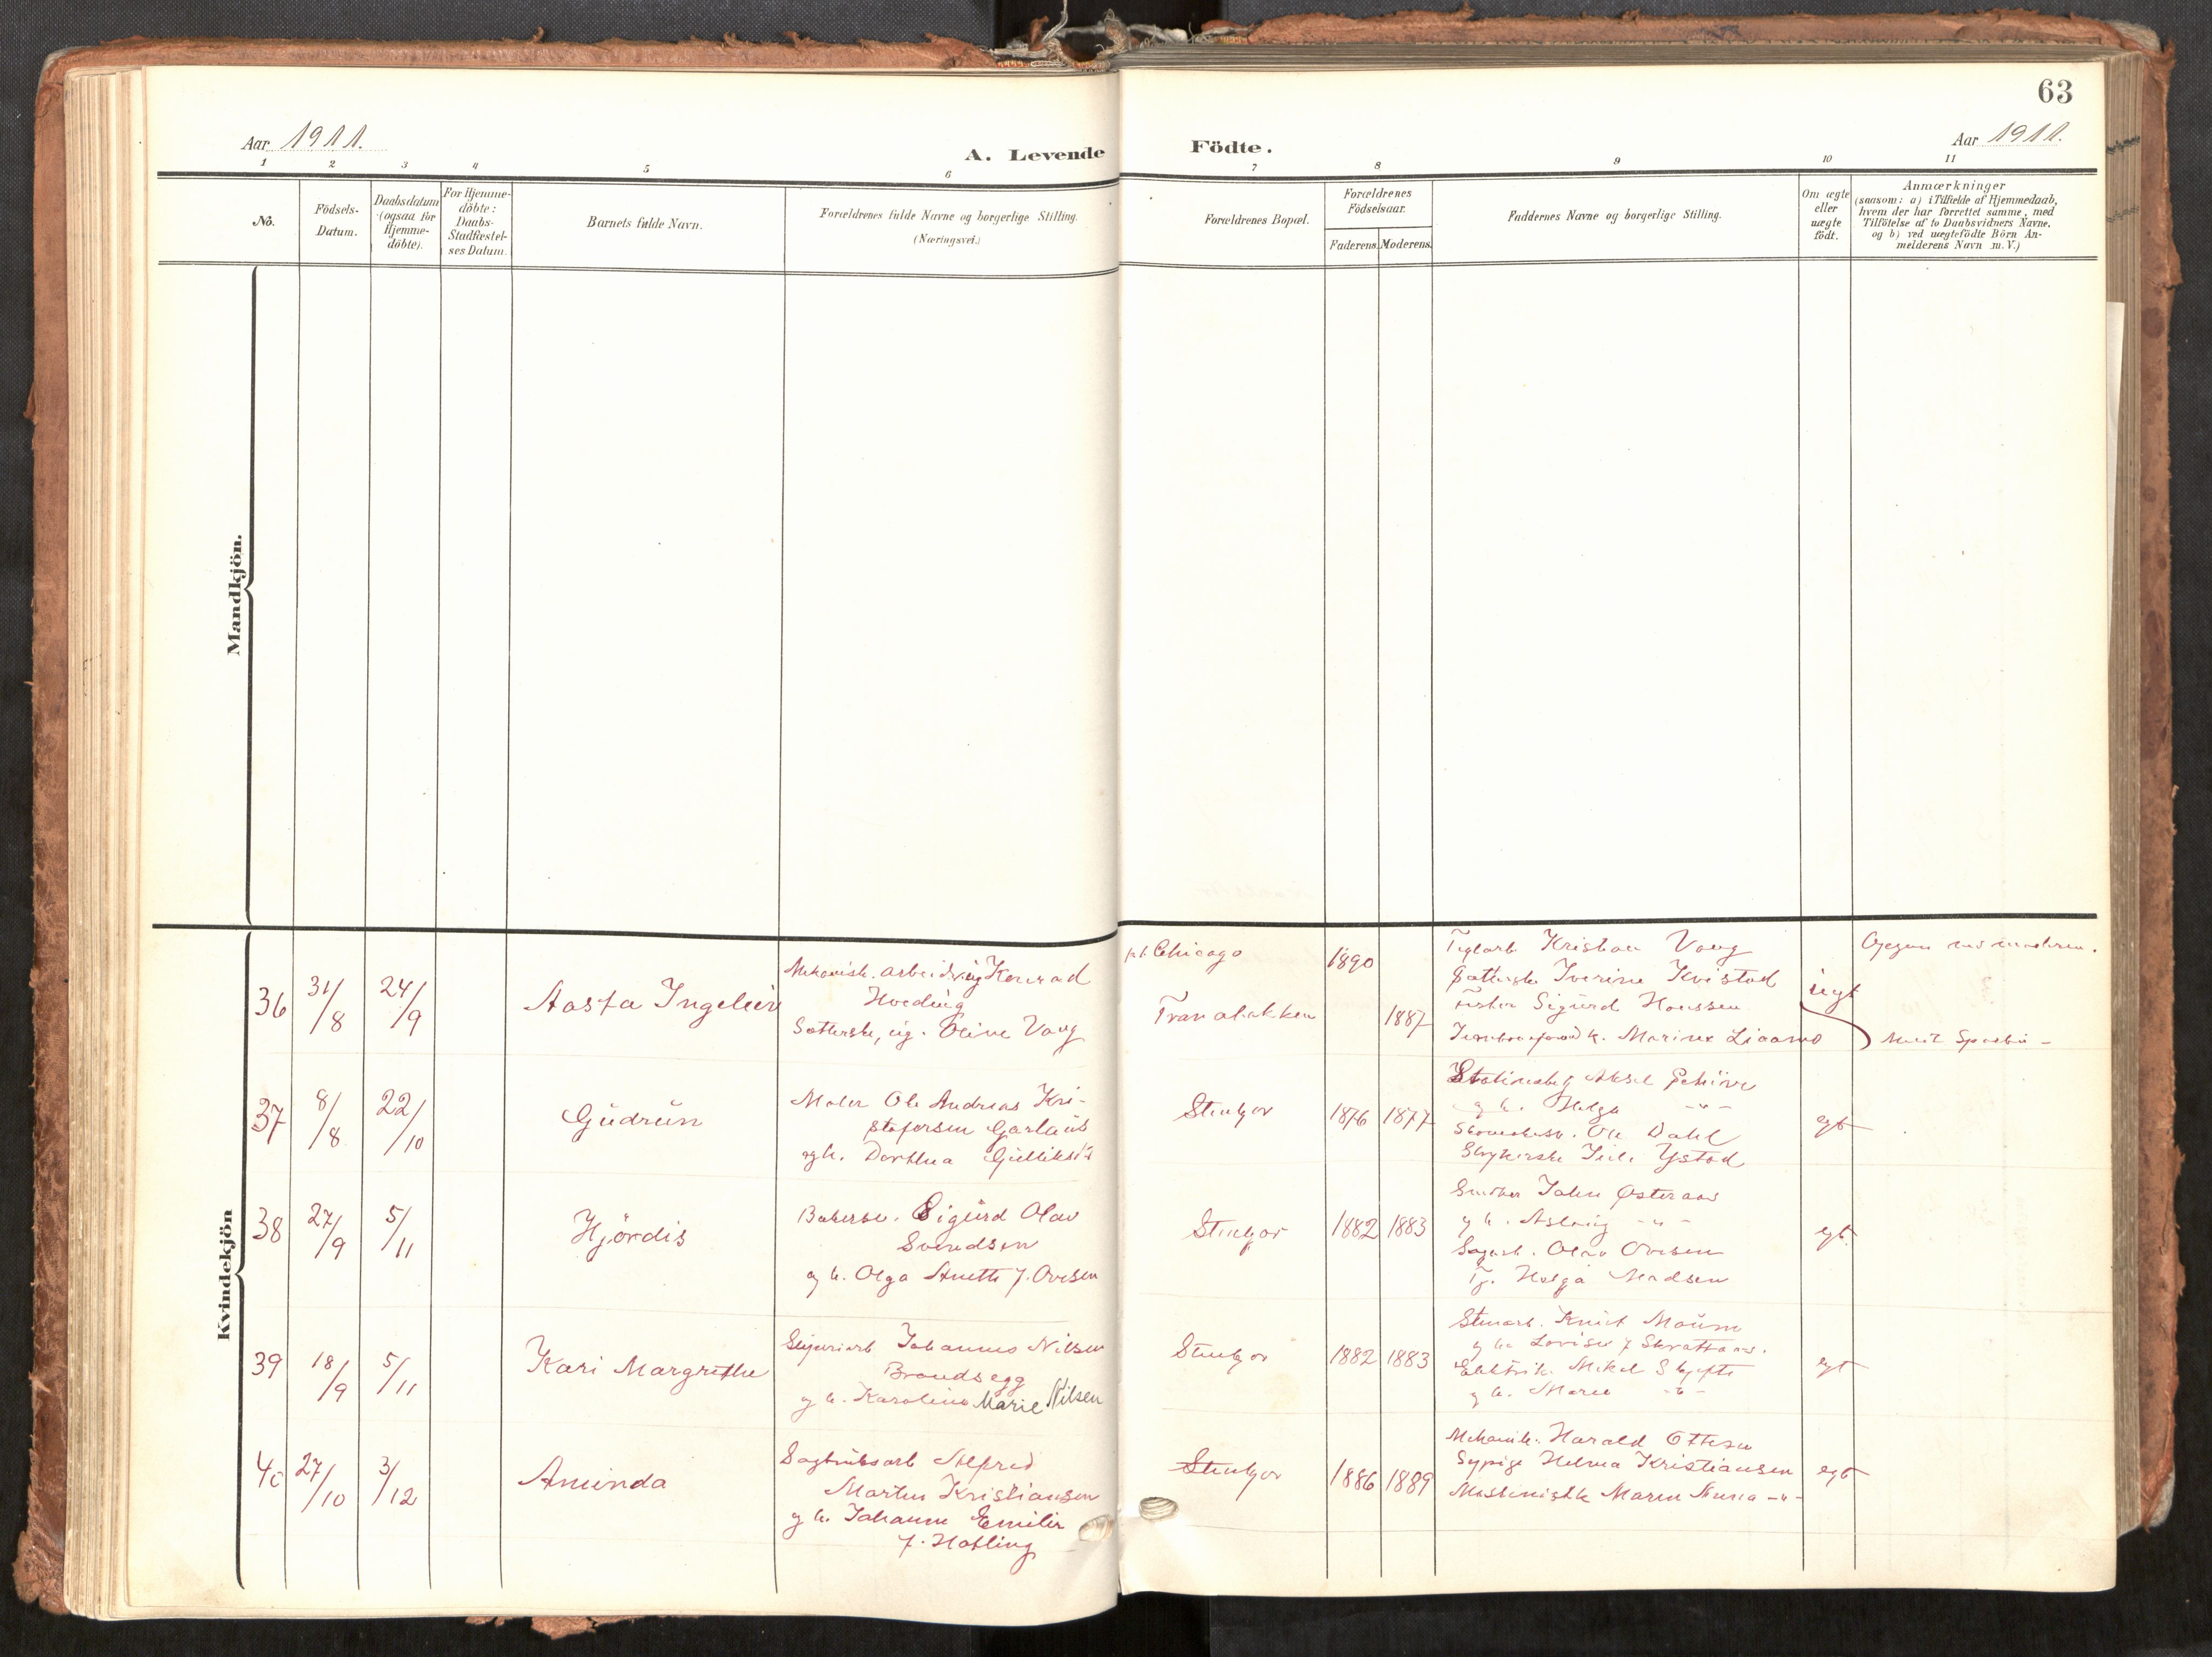 63
Aar 1911.
A. Levende Födte.
Aar 1911.
1 2 3 4 5 6 7 8 9 10 11
No.
Födsels-Datum.
Daabsdatum (ogsaa for Hjemme-döbte).
For Hjemme-döbte: Daabs-Stadfæstel-ses Datum.
Barnets fulde Navn.
Forældrenes fulde Navne og borgerlige Stilling.
(Næringsvei.)
Forældrenes Bopæl.
Forældrenes Födselsaar.
Faderens. Moderens.
Faddernes Navne og borgerlige Stilling.
Om ægte eller uægte födt.
Anmærkninger
(saasom: a) i Tilfælde af Hjemmedaab,
hvem der har forrettet samme, med
Tilföielse af to Daabsvidners Navne,
og b) ved uægtefödte Börn An-
melderens Navn m.V.)
Mandkjön.
Kvindekjön
36 31/8 24/9 Aasta
Mekanisk. arbeider, ug. Konrad
Hveding
ug. Oline Vang
p.t. Chicago 1890
1887
Kristian Vang
Iverine Kvistad
Fisker Sigurd Hanssen
k. Marine Liaamo
uegt
37 8/8 22/10 Gudrun
Maler Ole Andreas Kri-
stofersen
ogh. Dorthea
Stenkjær 1876 1877
Aksel
g h. Helga -"-
Ole Dahl
Ystad
egt
38 27/9 5/11 Hjördis
Bakersv. Sigurd Olav
Svendsen
og h. Olga Anette f. Ovesen
Stenkjær 1882 1883
Smed John Østeraas
g h. Aslaug -"-
Sagarb. Olav Ovesen
Tj. Helga Madsen
egt
39 18/9 5/11 Kari Margrethe
Johannes Nilsen
Brandsegg
g h. Karoline Marie Nilsen
Stenkjær 1882 1883
Stenarb. Knut
g h. Lovise f.
Elektrik. Mikal
g h. Marie -"-
egt
40 27/10 3/12 Aminda
Sagbruksarb Alfred
Martin Kristiansen
g h. Johanne Emilie
f. Hofling
Stenkjær 1886 1889
Mekanik. Harald Ottesen
Sypige Helma Kristiansen
Maren Anna -"-
egt